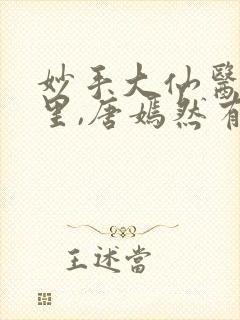 妙手大仙醫
里,唐嫣然有
王述當